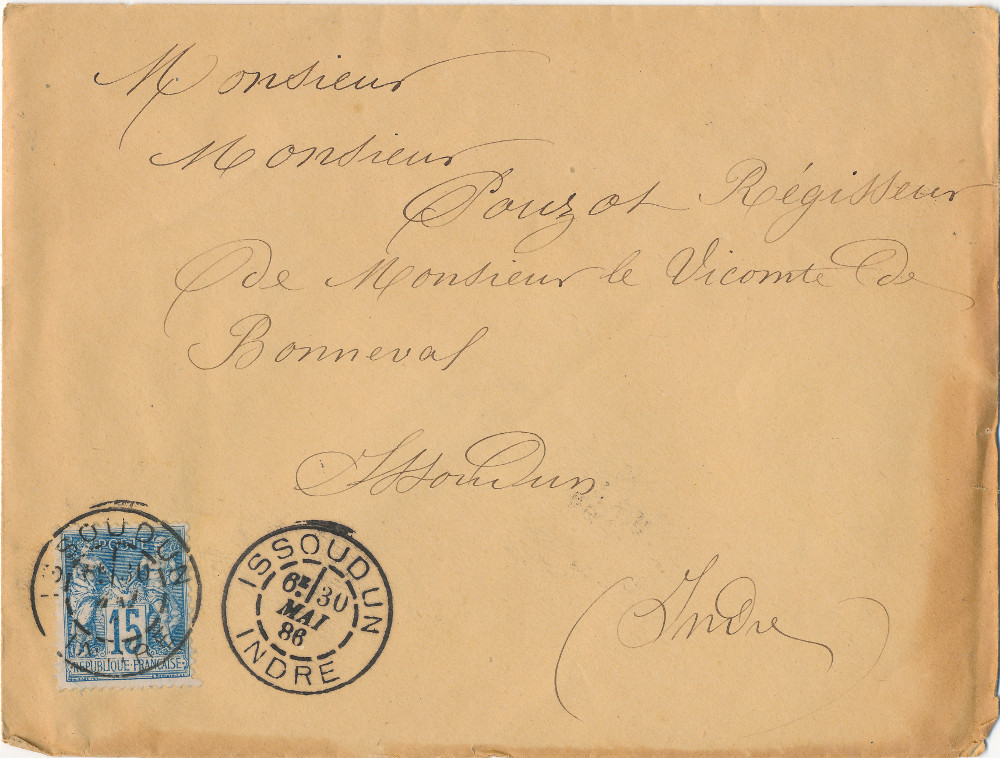 Monsieur
Monsieur
Pouzot Régisseur
de Monsieur le Vicomte de
Bonneval
Issoudun
Indre
ISSOUDUN
POSTE
15
REPUBLIQUE FRANÇAISE
ISSOUDUN
6E 30
MAI
86
INDRE